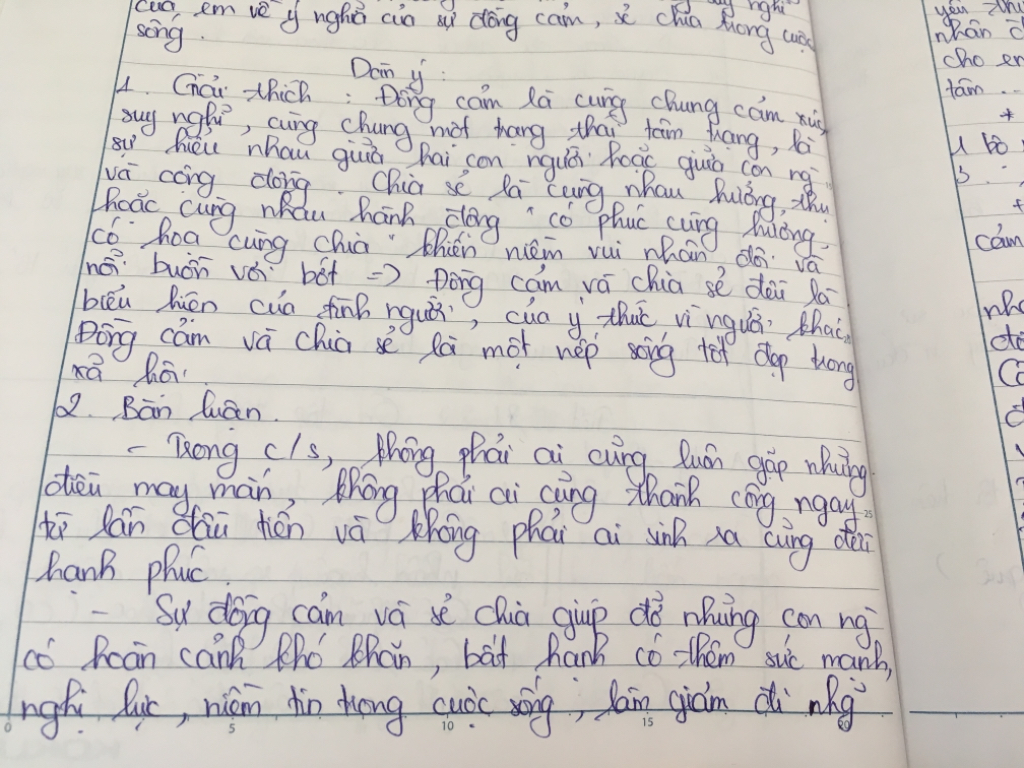 suy nghĩ
của em về ý nghĩa của sự đồng cảm, sẻ chia trong cuộc
sống.
Dàn ý:
1. Giải thích: Đồng cảm là cùng chung cảm xúc,
suy nghĩ, cùng chung một trạng thái tâm trạng, là
sự hiểu nhau giữa hai con người hoặc giữa con ng
và cộng đồng. Chia sẻ là cùng nhau hưởng thụ
hoặc cùng nhau hành động "có phúc cùng hưởng,
có họa cùng chia" khiến niềm vui nhân đôi và
nỗi buồn vơi bớt => Đồng cảm và chia sẻ đều là
biểu hiện của tình người, của ý thức vì người khác.
Đồng cảm và chia sẻ là một nếp sống tốt đẹp trong
xã hội.
2. Bàn luận.
- Trong c/s, không phải ai cũng luôn gặp những
điều may mắn, không phải ai cũng thành công ngay
từ lần đầu tiên và không phải ai sinh ra cũng đều
hạnh phúc.
- Sự đồng cảm và sẻ chia giúp đỡ những con ng
có hoàn cảnh khó khăn, bất hạnh có thêm sức mạnh,
nghị lực, niềm tin trong cuộc sống, làm giảm đi nhg
0 5 10 15 20
25
nhân
cho em
tâm ...
*
1 bộ
cảm